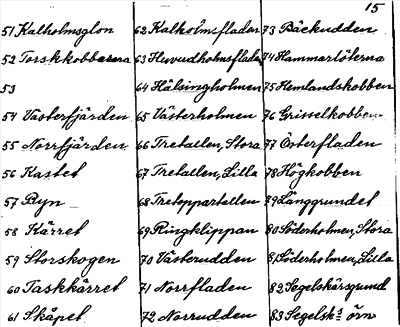 15
51 Kalholmsglon
52 Torskkobbarna
53
54 Västerfjärden
55 Norrfjärden
56 Kastet
57 Byn
58 Kärret
59 Storskogen
60 Taskkärret
61 Skåpet
62 Kalholmsfladen
63 Huvudholmsflada
64 Hälsingholmen
65 Västerholmen
66 Tretallen, Stora
67 Tretallen, Lilla
68 Tretoppartallen
69 Ringklippan
70 Västerudden
71 Norrfladen
72 Norrudden
73 Bäckudden
74 Hammarlöterna
75 Hemlandskobben
76 Grisselkobben
77 Österfladen
78 Högkobben
79 Långgrundet
80 Söderholmen, Stora
81 Söderholmen, Lilla
82 Segelskärsgrund
83 Segelsk: örn